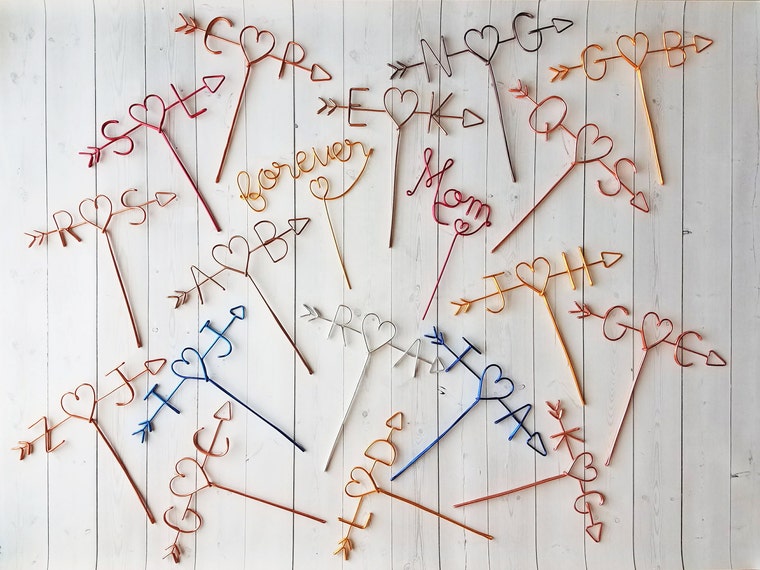 C R
N G
G B
S L
E K
Q S
forever
Mom
R S
A B
J H
R A
G C
I J
I A
Z J
G C
L D
K G